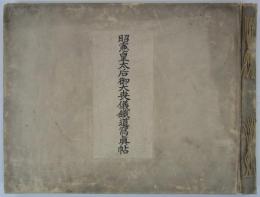 昭憲皇太后御大喪儀鐵道寫眞帖